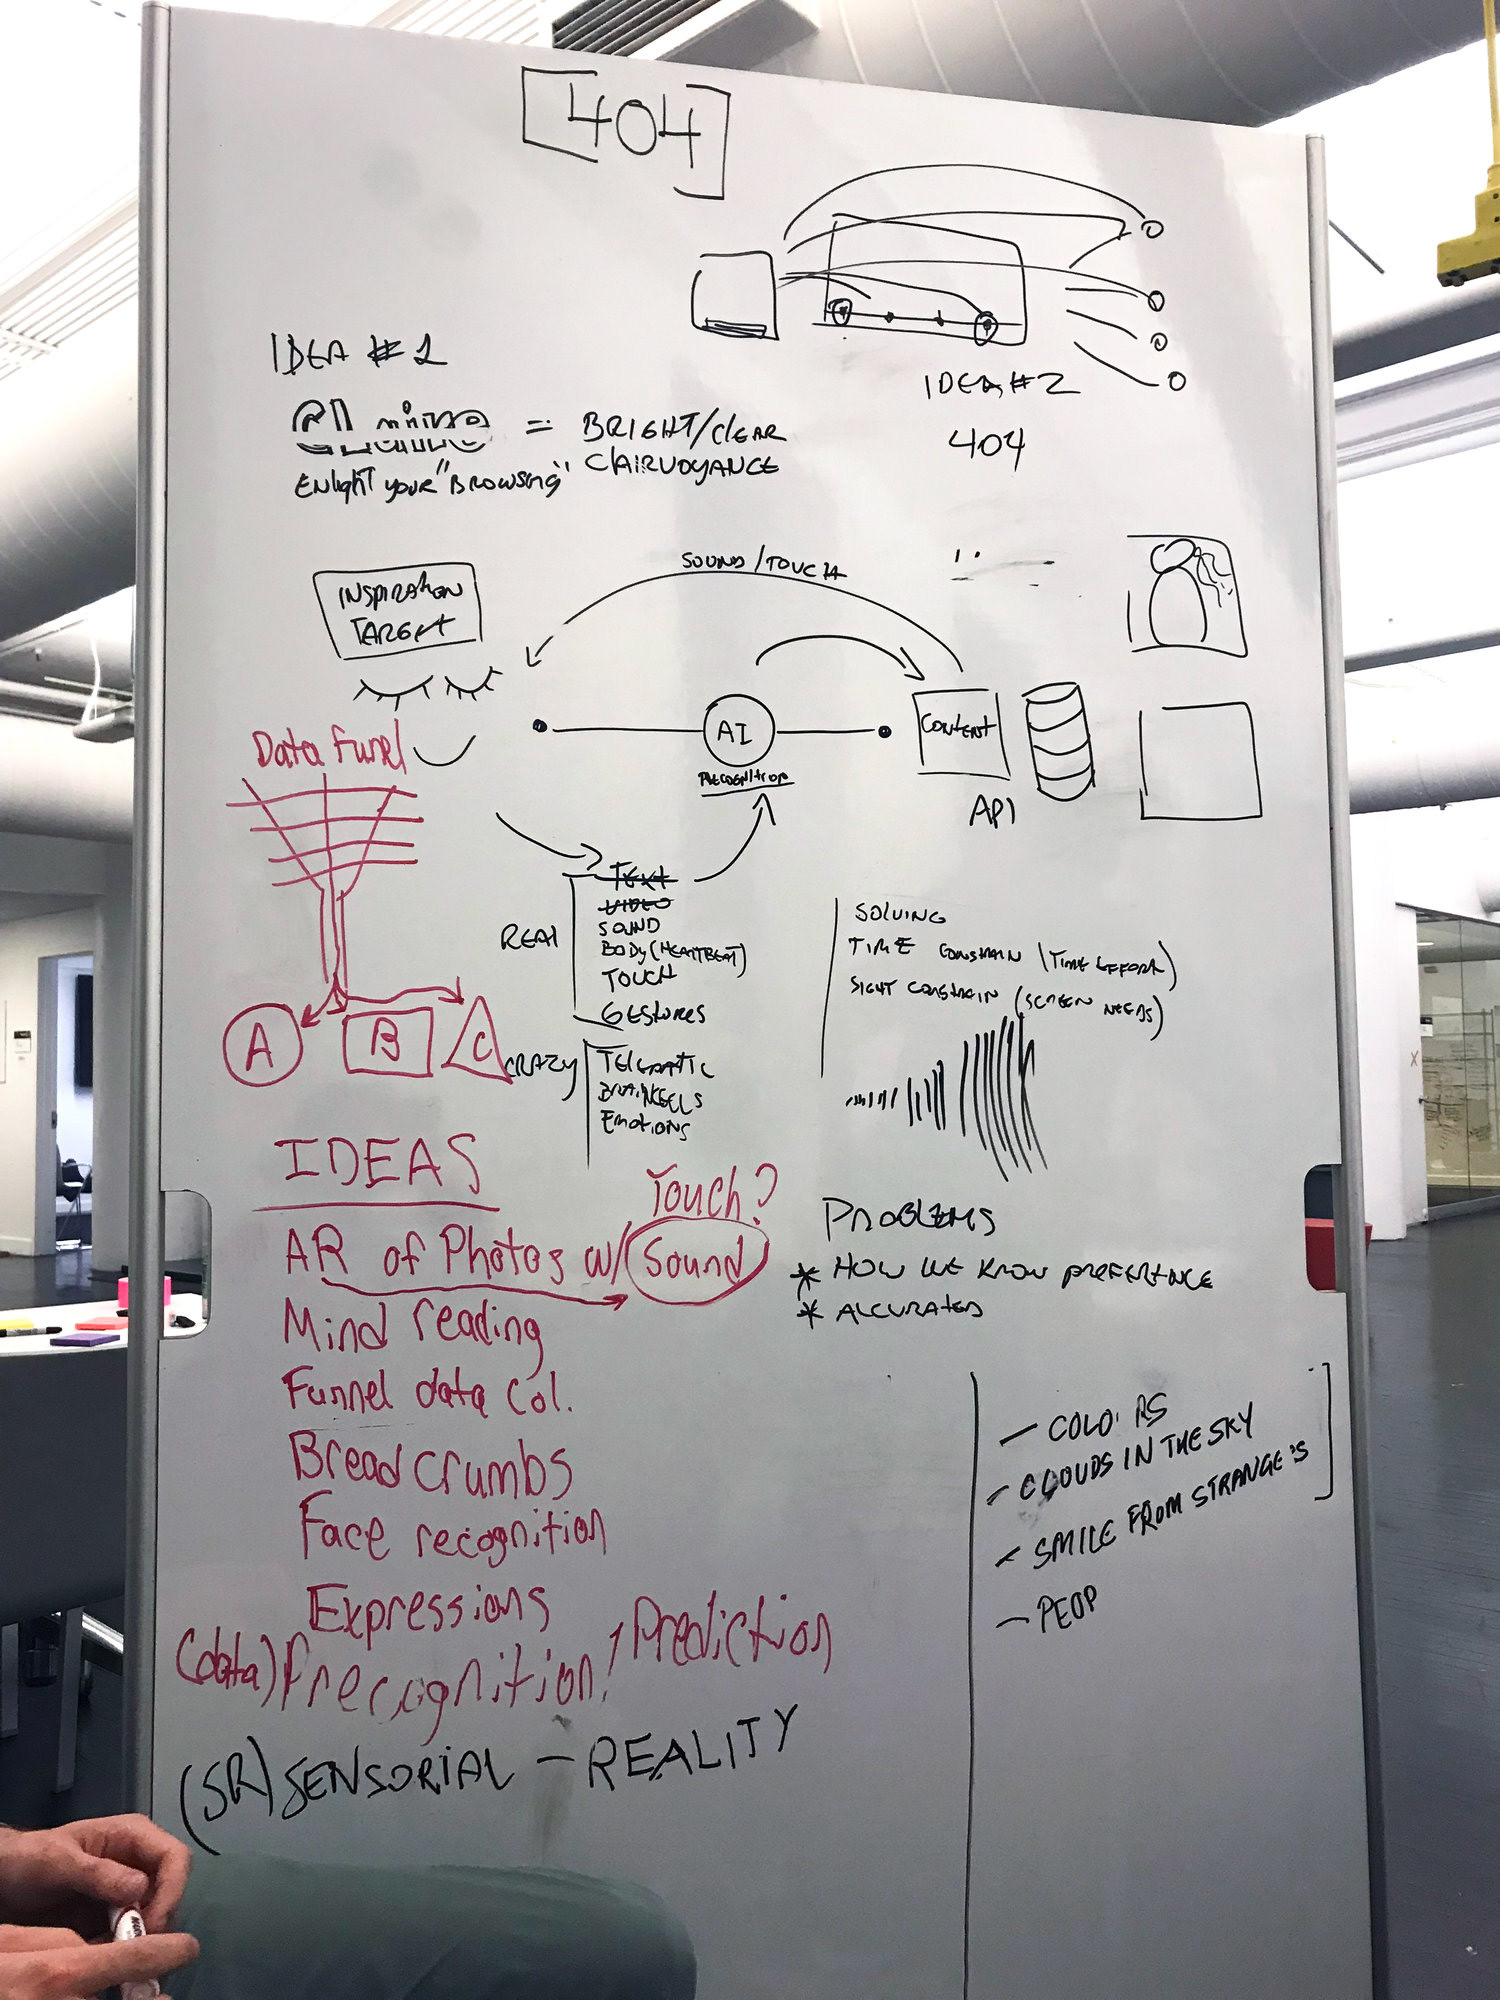 [404]
IDEA #1
= BRIGHT/CLEAR
CLAIRVOYANCE
ENLIGHT YOUR "BROWSING"
IDEA #2
404
INSPIRATION
TARGET
SOUND/TOUCH
AI
PRECOGNITION
CONTENT
API
Data Funel
A
B
C
REAL
TEXT
VIDEO
SOUND
BODY (HEARTBEAT)
TOUCH
GESTURES
CRAZY
EMOTIONS
SOLVING
TIME CONSTRAIN (TIME EFFORT)
SIGHT CONSTRAIN (SCREEN NEEDS)
IDEAS
Touch?
AR of Photos w/ Sound
Mind reading
Funnel data col.
Bread crumbs
Face recognition
Expressions
(data) Precognition! / Prediction
(SR) SENSORIAL - REALITY
PROBLEMS
* HOW WE KNOW PREFERENCE
* ACCURATED
- CLOUDS IN THE SKY
- SMILE FROM STRANGE'S
- PEOP